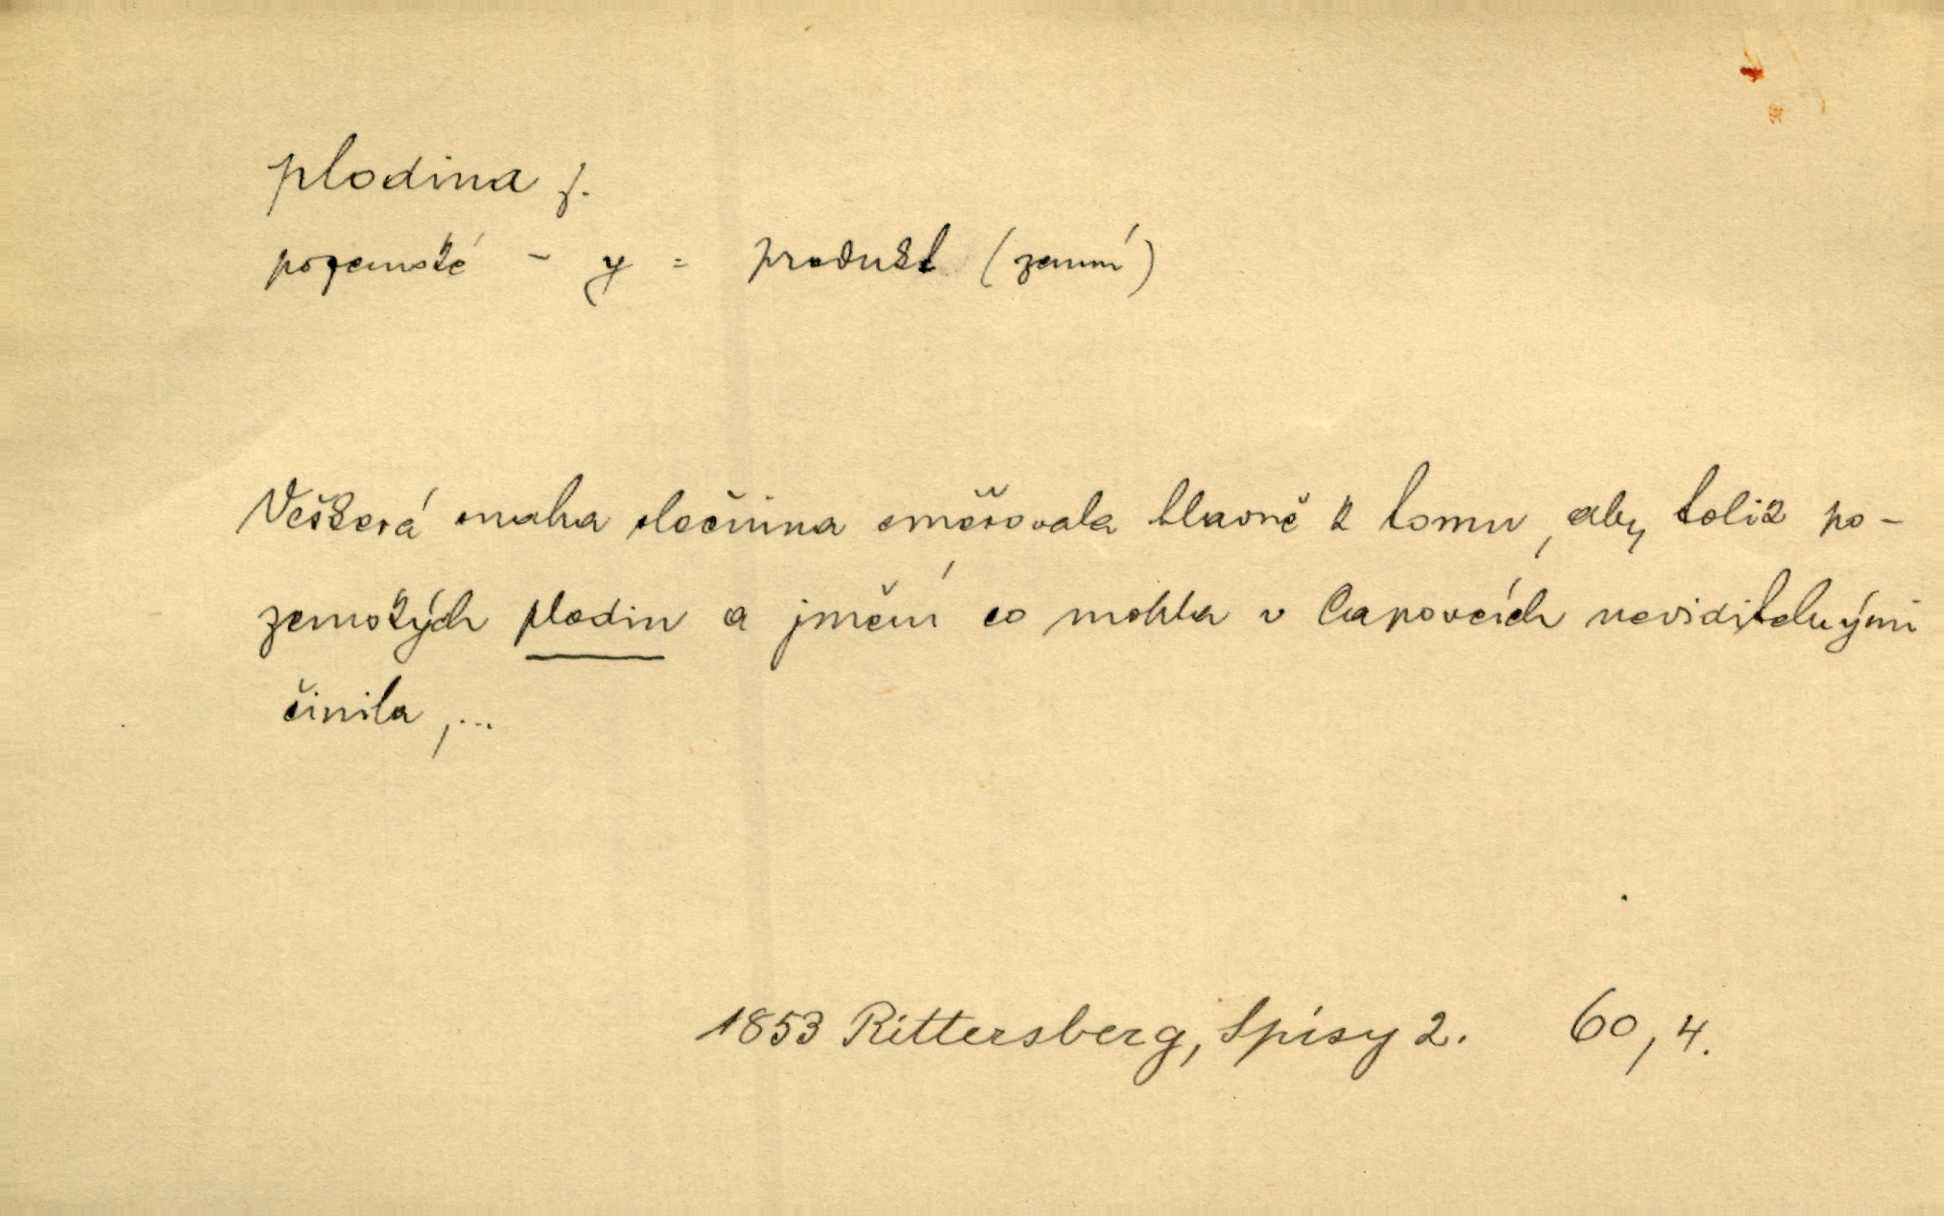 plodina f.
pozemské - y = produkt (zemní)
Veškerá snaha slečinina směřovala hlavně k tomu, aby tolik po-
zemských plodin a jmění co mohla v Capovcích neviditelnými
činila,...
1853 Rittersberg, Spisy 2. 60,4.